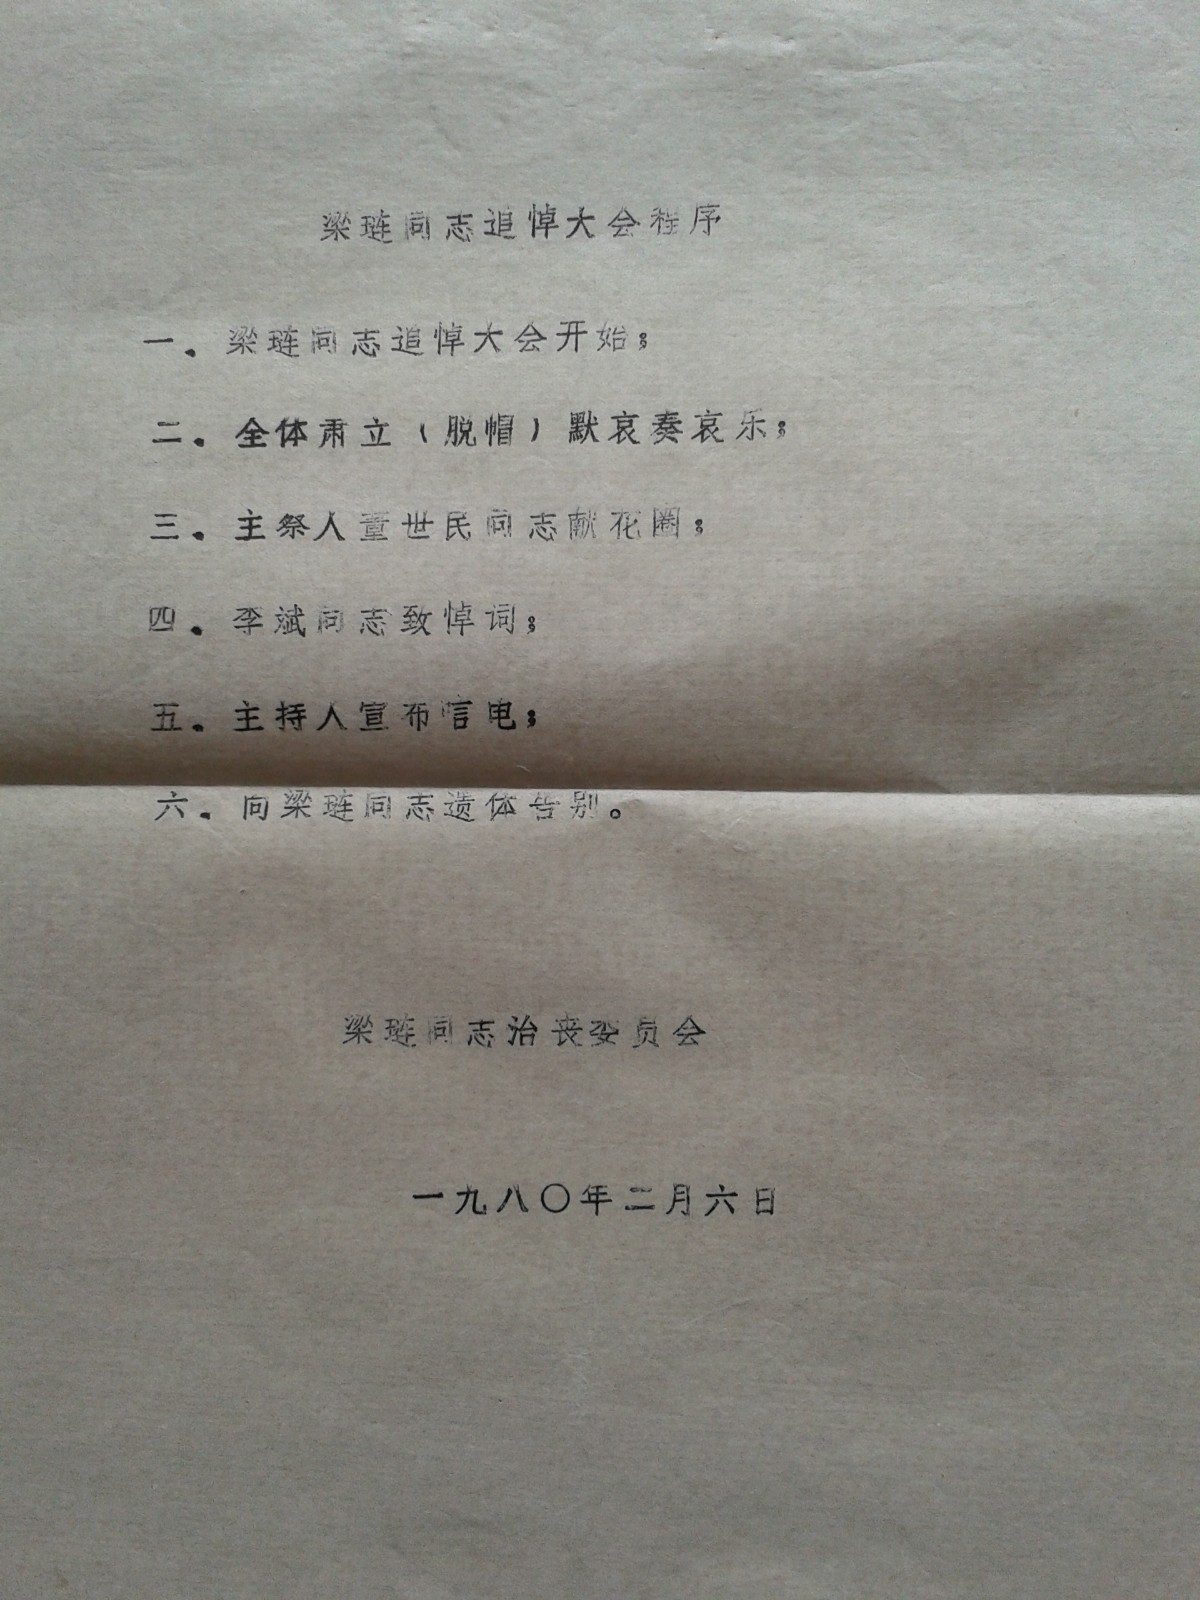 梁琏同志追悼大会程序
一.梁琏同志追悼大会开始;
二.全体肃立(脱帽)默哀奏哀乐;
三.主祭人童世民同志献花圈;
四.李斌同志致悼词;
五.主持人宣布唁电;
六.向梁琏同志遗体告别。
梁琏同志治丧委员会
一九八〇年二月六日